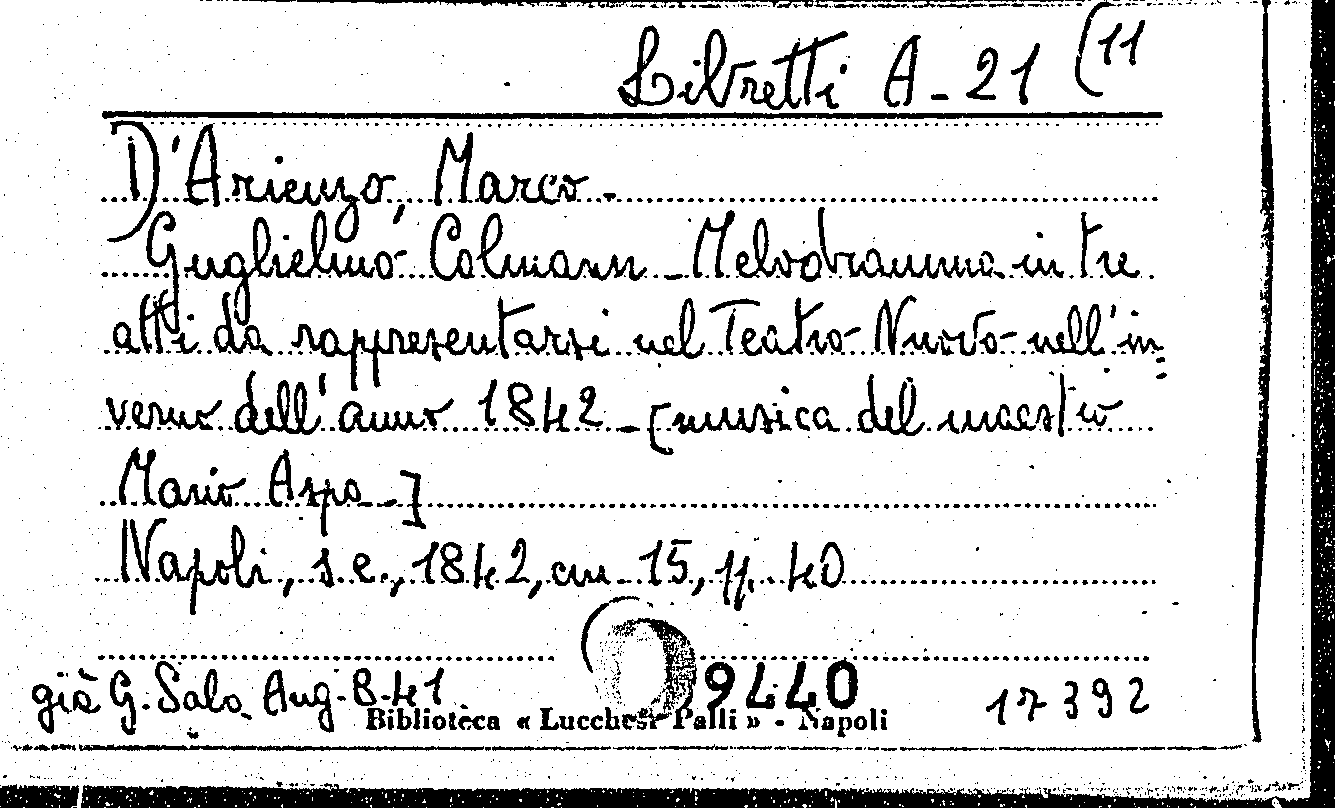 Libretti A-21 (11
D'Arienzo, Marco-
Guglielmo Colmann - Melodramma in tre
atti da rappresentarsi nel Teatro Nuovo nell'in=
verno dell'anno 1842 - [musica del maestro
Mario Aspa-]
Napoli, s.e., 1842, cm. 15, pp. 40
già G. Sala Aug. 8-41.
9440
17392
Biblioteca « Lucchesi Palli » - Napoli